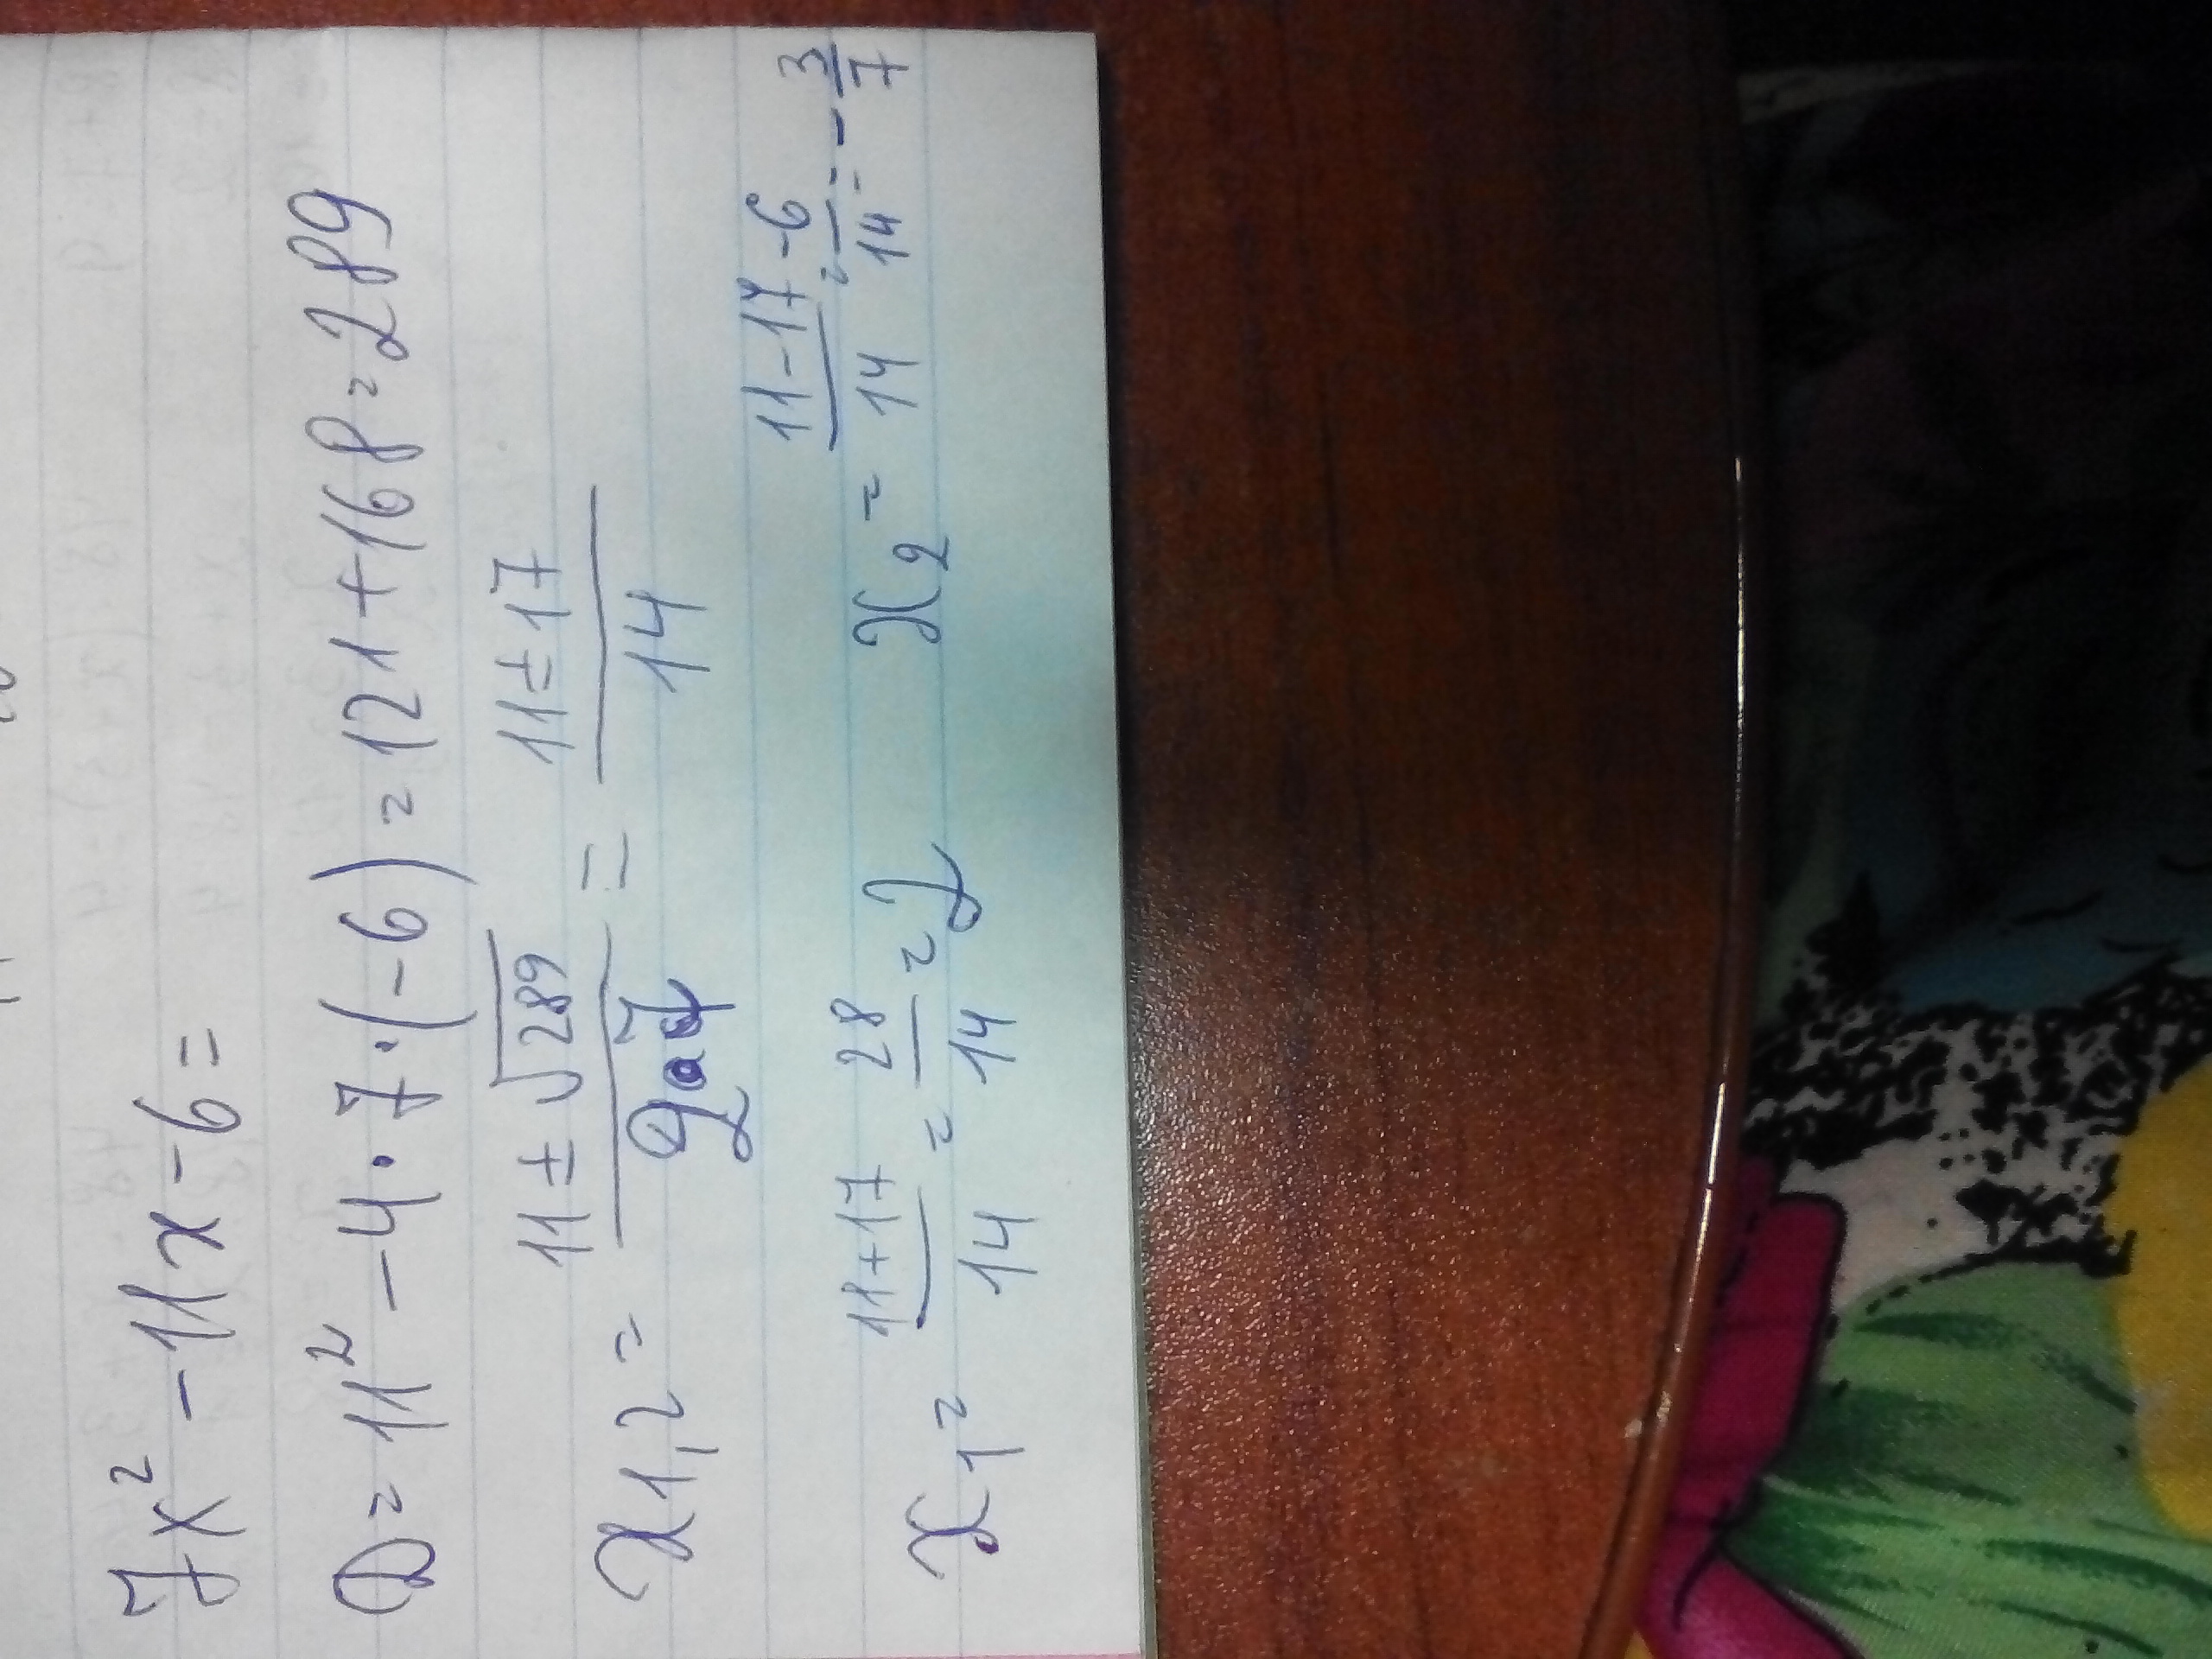 7x² - 11x - 6 =
D = 11² - 4 · 7 · (-6) = 121 + 168 = 289
x1,2 = (11 ± √289) / 2·7 = (11 ± 17) / 14
x1 = (11 + 17) / 14 = 28 / 14 = 2 x2 = (11 - 17) / 14 = -6 / 14 = - 3 / 7